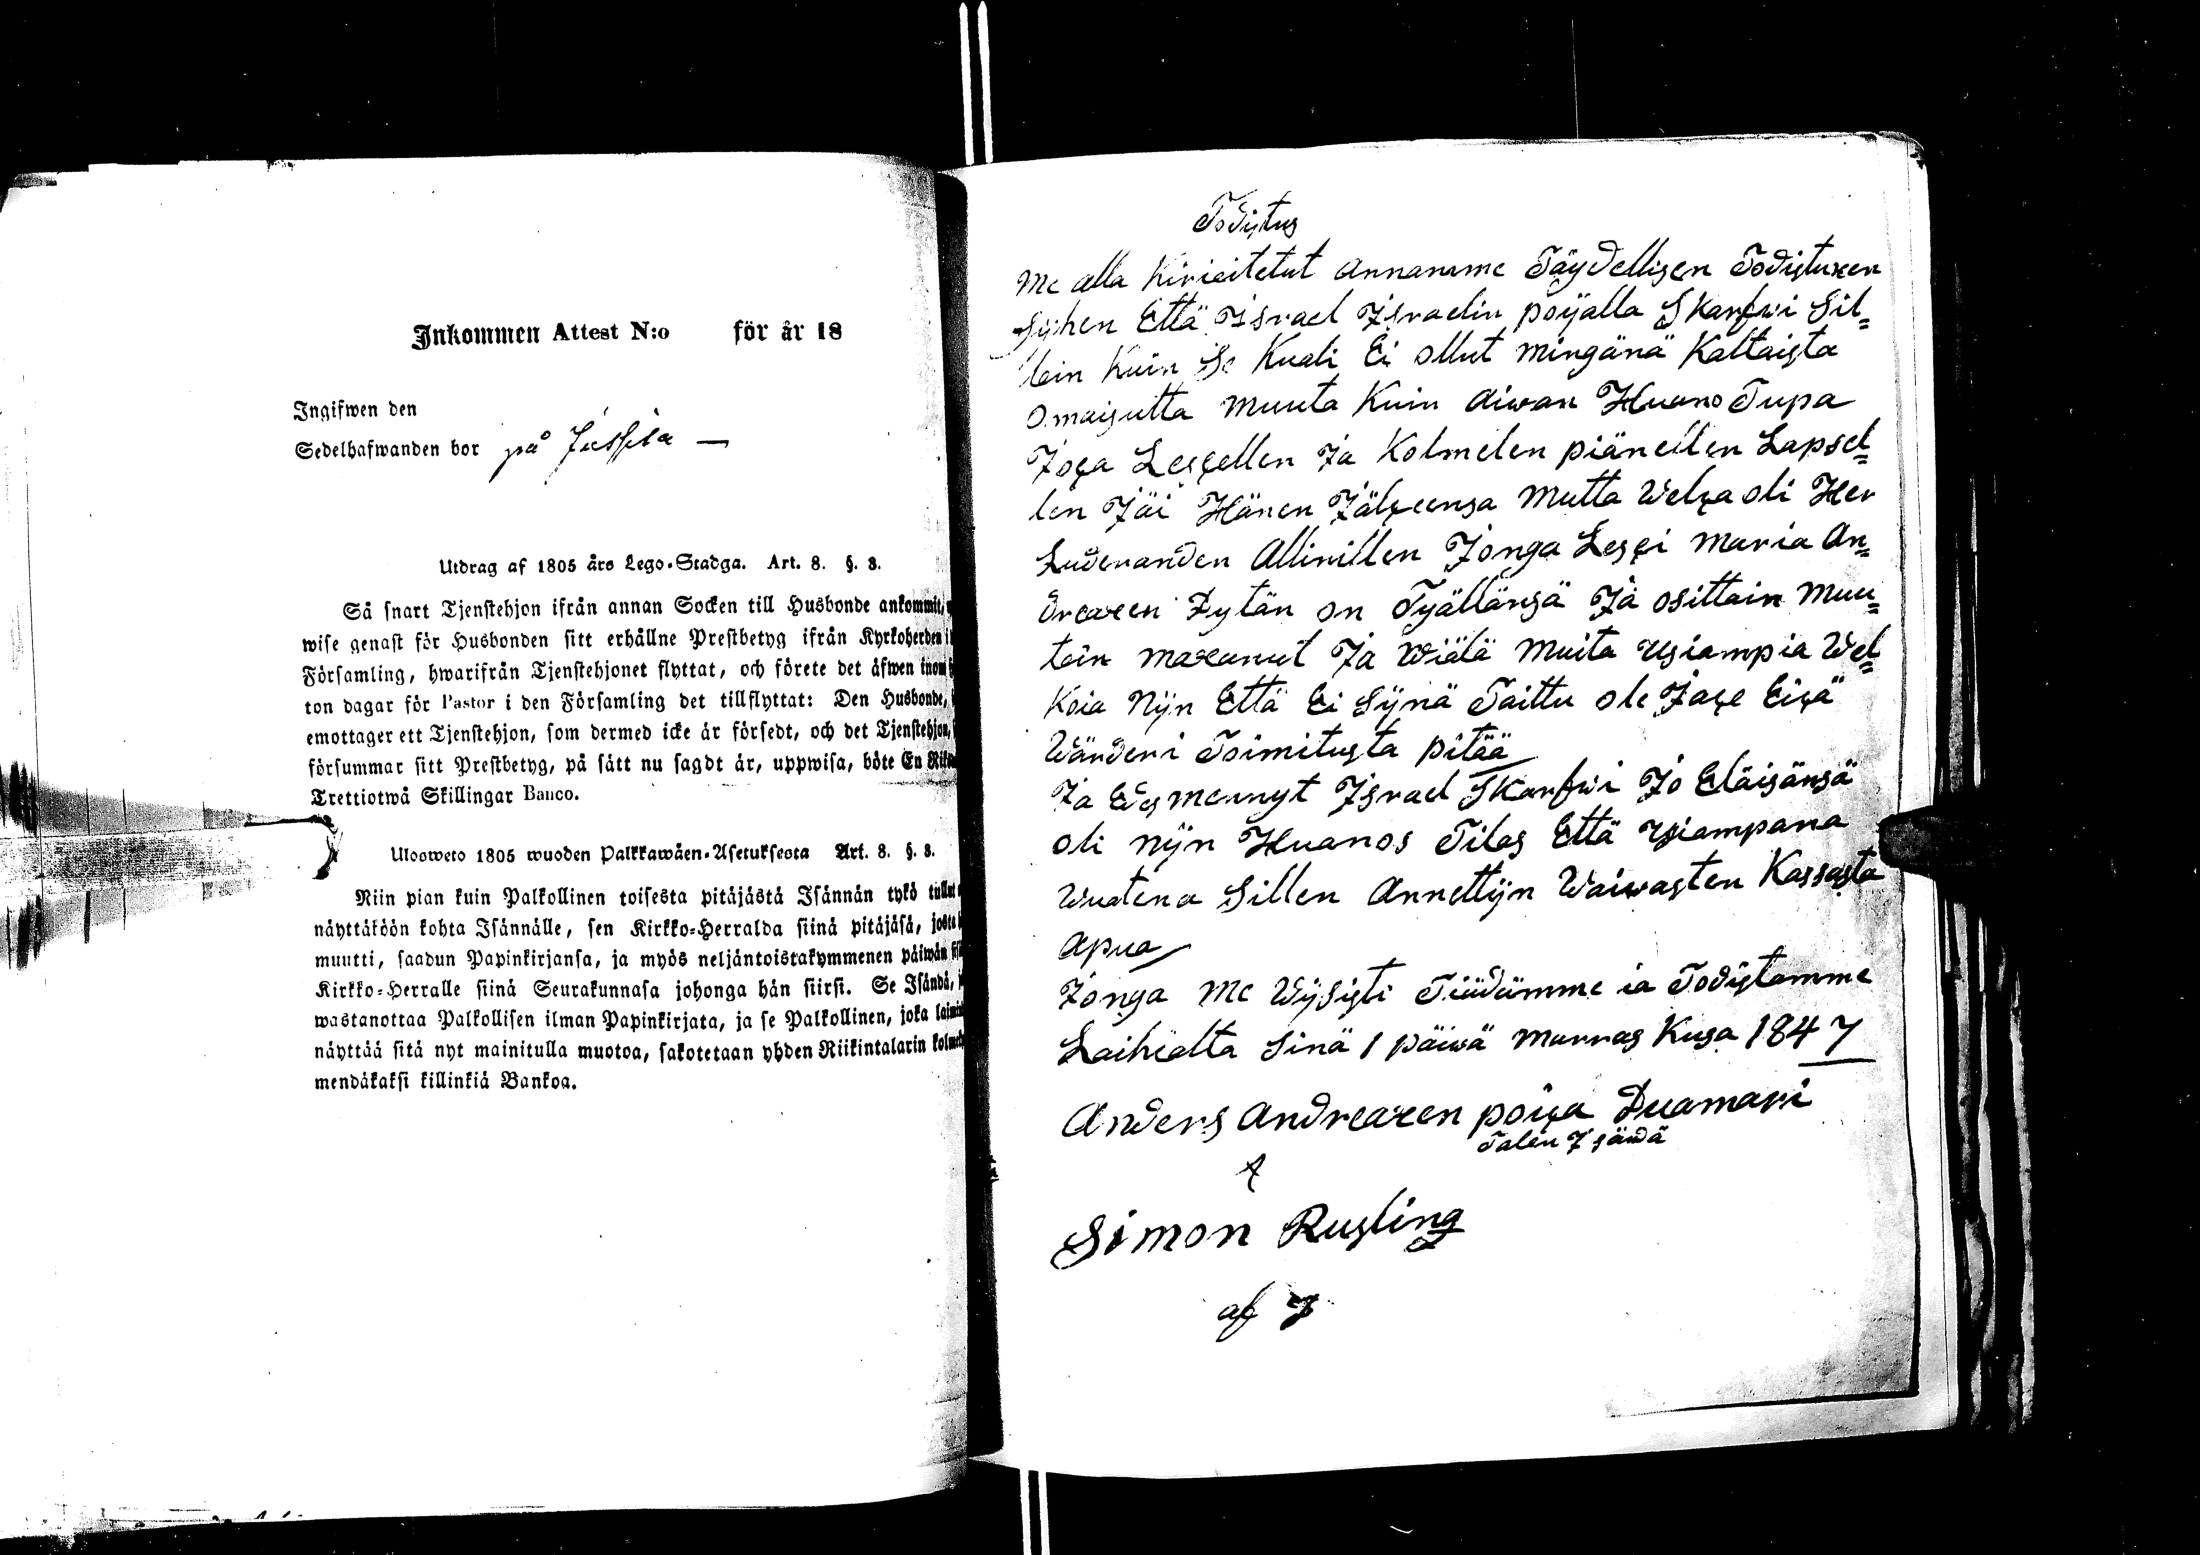 Inkommen Attest N:o för år 18
Ingifwen den
Sedelhafwanden bor på Jussila —
Utdrag af 1805 års Lego-Stadga. Art. 8. §. 8.
Så snart Tjenstehjon ifrån annan Socken till Husbonde ankommit,
wise genast för Husbonden sitt erhållne Prestbetyg ifrån Kyrkoherden i
Församling, hwarifrån Tjenstehjonet flyttat, och förete det äfwen inom
ton dagar för Pastor i den Församling det tillflyttat: Den Husbonde,
emottager ett Tjenstehjon, som dermed icke är försedt, och det Tjenstehjon,
försummar sitt Prestbetyg, på sätt nu sagdt är, uppwisa, böte En
Trettiotwå Skillingar Banco.
Ulosweto 1805 wuoden Palkkawäen-Asetuksesta Art. 8. §. 8.
Niin pian kuin Palkollinen toisesta pitäjästä Isännän tykö tullut
näyttäköön kohta Isännälle, sen Kirkko-Herralda siinä pitäjäsä, josta
muutti, saadun Papinkirjansa, ja myös neljäntoistakymmenen päiwän
Kirkko-Herralle siinä Seurakunnasa johonga hän siirsi. Se Isändä,
wastanottaa Palkollisen ilman Papinkirjata, ja se Palkollinen, joka
näyttää sitä nyt mainitulla muotoa, sakotetaan yhden Riikintalarin
mendäkaksi killinkiä Bankoa.
Todistus
Me alla Kirieitetut Annamme Täydellisen Todistuxen
Sijhen Että Israel Israelin poijalla Skarfwi Sil=
lein Kuin Se Kuali Ei ollut mingänä Kaltaista
omaisutta muuta Kuin aiwan Huano Tupa
Joça Lesçellen Ja Kolmelen piänellen Lapsel=
len Jäi Hänen Jälçeensa Mutta Welça oli Her
Luderanden Allinillen Jonga Lesçi Maria An=
dreaxen Dytän on Tyällänsä Ja osittain Muu=
toin maxanut Ja Wiälä Muita Usiampia Wel=
Koia Nijn Että Ei Sijnä Taittu ole Jaçe Eiçä
Wänderi Toimitusta pitää
Ja Edesmennyt Israel Skarfwi Jo Eläisänsä
oli nijn Huanos Tilas Että Usiampana
Wuatena Sillen Annettijn Waiwasten Kassasta
apua
Jonga Me Wijsisti Tiädämme ia Todistamme
Laihialta Sinä 1 päiwä Marras Kusa 1847
Anders Andreaxen poiça Duamari
Talon Isändä
Simon Rusling
af